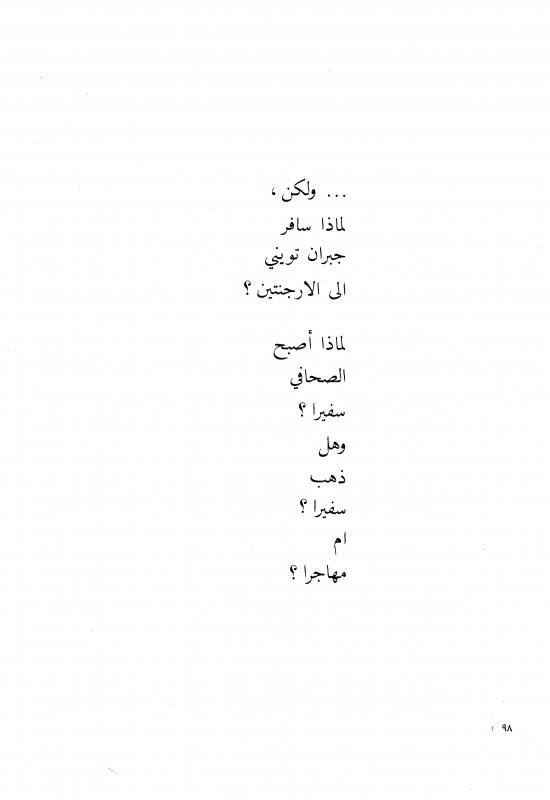 ... ولكن ،
لماذا سافر
جبران تويني
الى الارجنتين ؟
لماذا أصبح
الصحافي
سفيرا ؟
وهل
ذهب
سفيرا ؟
ام
مهاجرا ؟
٩٨